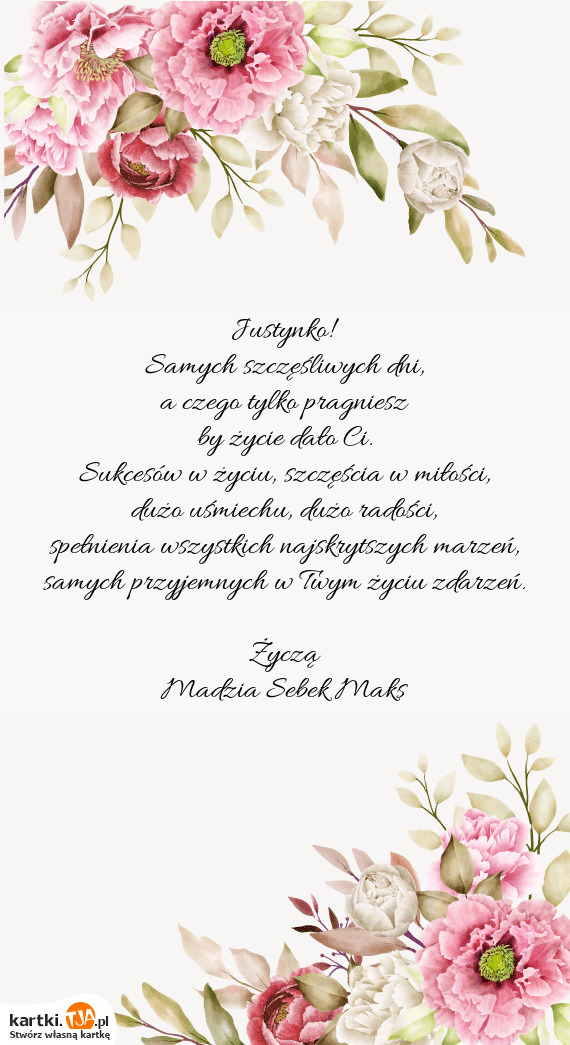 Justynko!
Samych szczęśliwych dni,
a czego tylko pragniesz
by życie dało Ci.
Sukcesów w życiu, szczęścia w miłości,
dużo uśmiechu, dużo radości,
spełnienia wszystkich najskrytszych marzeń,
samych przyjemnych w Twym życiu zdarzeń.
Życzą
Madzia Sebek Maks
kartki.TJA.pl
Stwórz własną kartkę